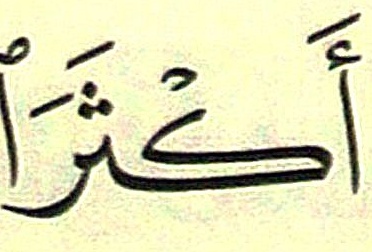 أَكْثَرَ ٱ